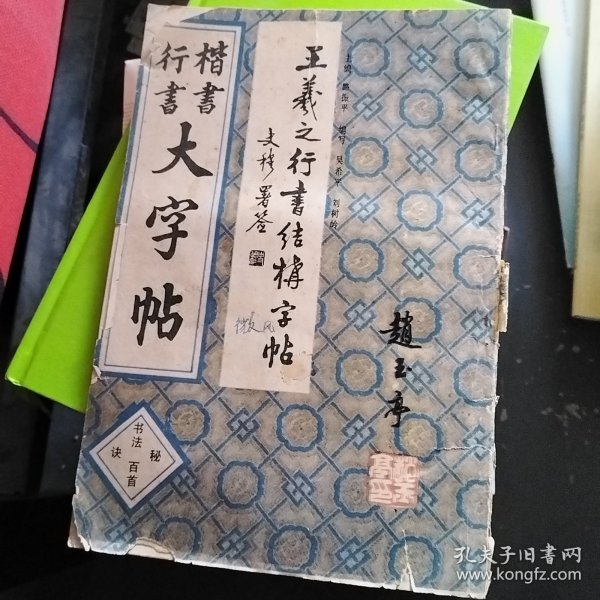 楷書
行書
大字帖
王羲之行書结構字帖
文稀署签
主编
编写 吴希平 刘树岭
趙玉亭
书法秘诀百首
孔夫子旧书网
www.kongfz.com